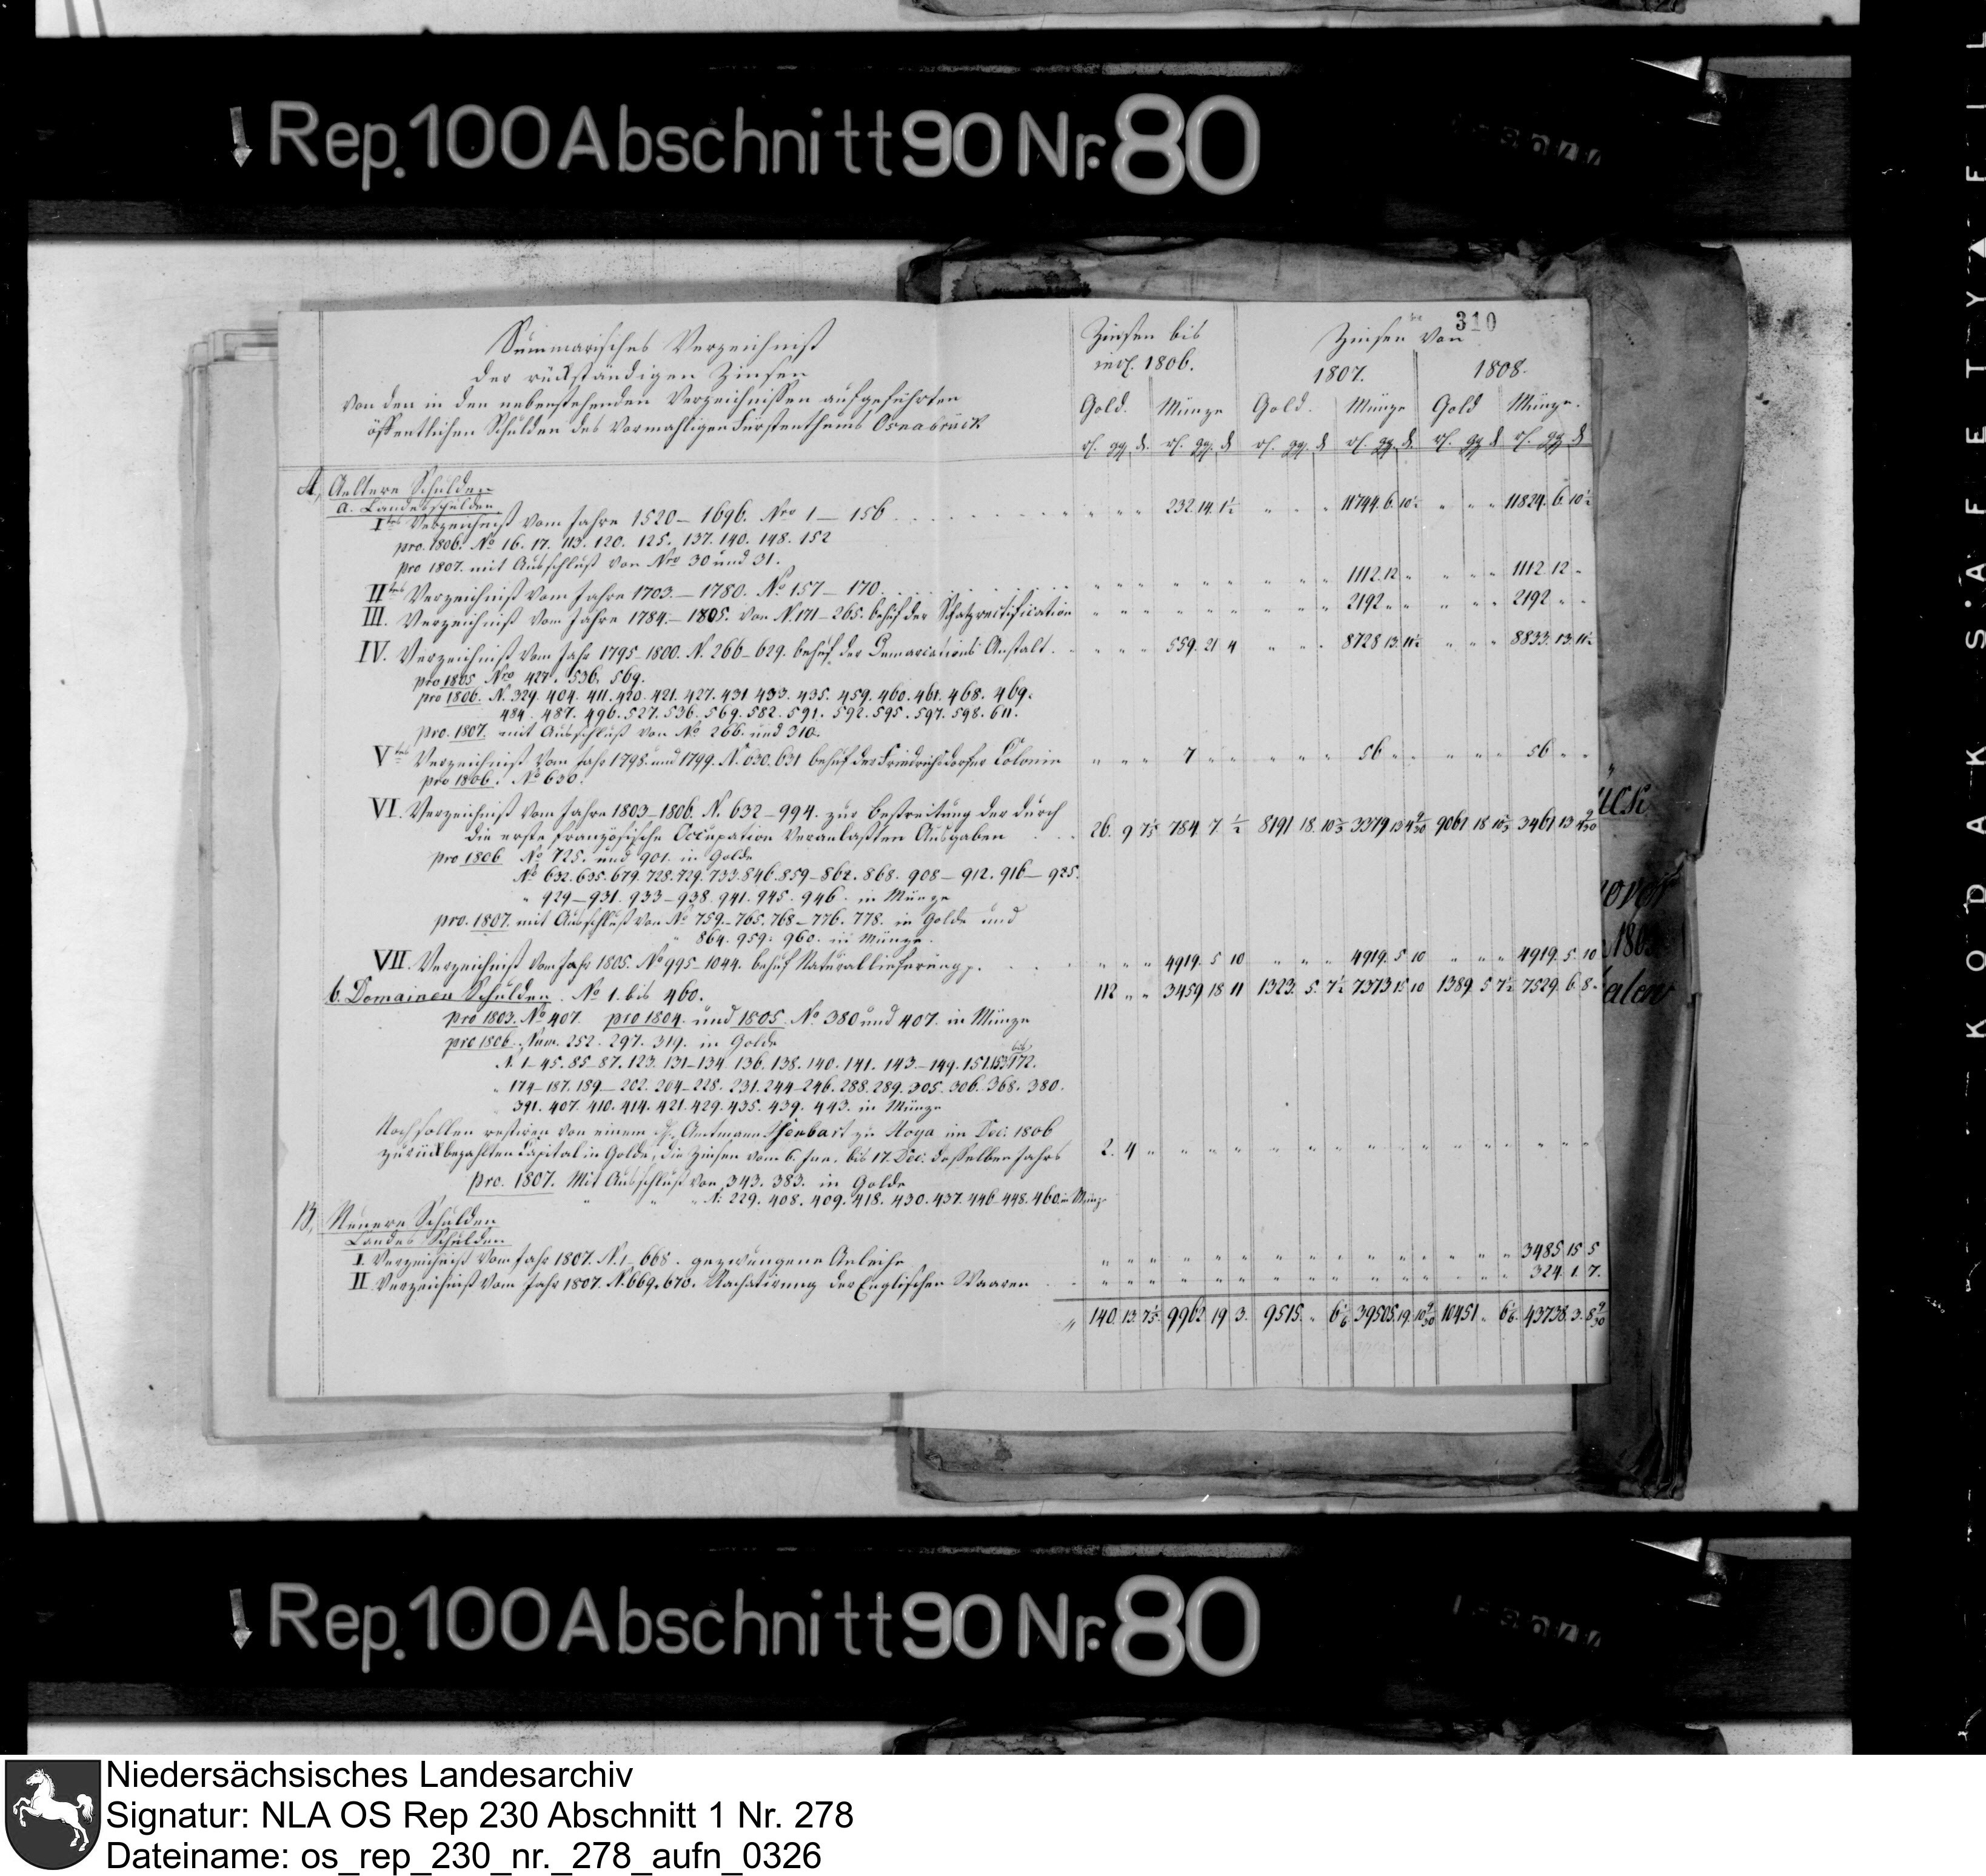 Rep. 100 Abschnitt 90 Nr. 80
310
Summarisches Verzeichniß
der rückständigen Zinsen
von den in den nebenstehenden Verzeichnissen aufgeführten
öffentlichen Schulden des vormahligen Fürstenthums Osnabrück
Zinsen bis incl. 1806.
Zinsen von
1807. 1808.
Gold. Münze Gold. Münze Gold Münze.
rh. gg. d. rh. gg. d rh. gg. d rh. gg. d. rh. gg d rh. gg d
A, Aeltere Schulden
a. Landesschulden.
I Verzeichniß vom Jahre 1520 – 1696. Nro 1 – 156 232. 14. 1½ 11744. 6. 10½ 11824. 6. 10½
pro. 1806. No 16. 17. 113. 120. 125. 137. 140. 148. 152
pro 1807. mit Ausschluß von Nro 30 und 31.
II Verzeichniß vom Jahre 1703. – 1780. No 157 – 170. 1112. 12 " 1112. 12 "
III. Verzeichniß vom Jahre 1784. – 1805. von N. 171 – 265. behuf der Schatzrectification 2192 " " 2192 " "
IV. Verzeichniß vom Jahr 1795–1800. N. 266–629. behuf der Demarcations Anstalt. 559. 21 4 8728 13. 11½ 8833. 13. 11½
pro 1805 Nro 427. 536. 569.
pro 1806. N. 329. 404. 411. 420. 421. 427. 431. 433. 435. 459. 460. 461. 468. 469.
484. 487. 496. 527. 536. 569. 582. 591. 592. 595. 597. 598. 611.
pro. 1807. mit Ausschluß von No 266. und 310.
V Verzeichniß vom Jahr 1798. und 1799. N. 630. 631 behuf der Friedrichsdorfer Colonie 7 " " 56 " " 56 " "
pro 1806. No 630.
VI. Verzeichniß vom Jahre 1803–1806. N. 632 – 994. zur Bestreitung der durch
die erste französische Occupation veranlaßten Ausgaben 26. 9 784. 7. ½ 8191 18. 3379 13 9061 18 3461 13
pro 1806 No 725. und 901. in Golde
No 632. 635. 679. 728. 729. 733. 846. 859–862. 868. 908 – 912. 916 – 925.
" 929 – 931. 933 – 938. 941. 945. 946. in Münze
pro. 1807. mit Ausschluß von No 759.–765. 768–776. 778. in Golde und
" 864. 959. 960. in Münze.
VII. Verzeichniß vom Jahr 1805. No 995–1044. behuf Naturallieferung 4919. 5 10 4919. 5 10 4919. 5. 10
b. Domainen Schulden. No 1. bis 460. 112 " " 3459 18 11 1323. 5. 7½ 7373 15 10 1389. 5 7½ 7529. 6. 8
pro 1803. No 407. pro 1804. und 1805. No 380 und 407. in Münze
pro 1806. Num. 252. 297. 319. in Golde
N. 1–45. 85–87. 123. 131–134. 136. 138. 140. 141. 143.–149. 151. 153. bis 172.
" 174–187. 189 – 202. 204–228. 231. 244–246. 288. 289. 305. 306. 368. 380.
391. 407. 410. 414. 421. 429. 435. 439. 443. in Münze
Noch sollen restiren von einem Amtmann zu Hoya im Dec: 1806
zurückbezahlten Capital in Golde, die Zinsen vom 6. Jan. bis 17. Dec. desselben Jahrs 2. 4 "
pro. 1807. Mit Ausschluß von 343. 383. in Golde
" " " N. 229. 408. 409. 418. 430. 437. 446. 448. 460. in Münze
B, Neuere Schulden
Landes Schulden
I. Verzeichniß vom Jahr 1807. N. 1–668. gezwungene Anleihe 3485. 15. 5
II Verzeichniß vom Jahr 1807. N. 669. 670. der Englischen Waaren 324. 1. 7.
140. 13. 9962. 19 3. 9515. " 39505. 19. 10451 " 43738. 3.
Rep. 100 Abschnitt 90 Nr. 80
KODAK SAFETY FIL
Niedersächsisches Landesarchiv
Signatur: NLA OS Rep 230 Abschnitt 1 Nr. 278
Dateiname: os_rep_230_nr._278_aufn_0326